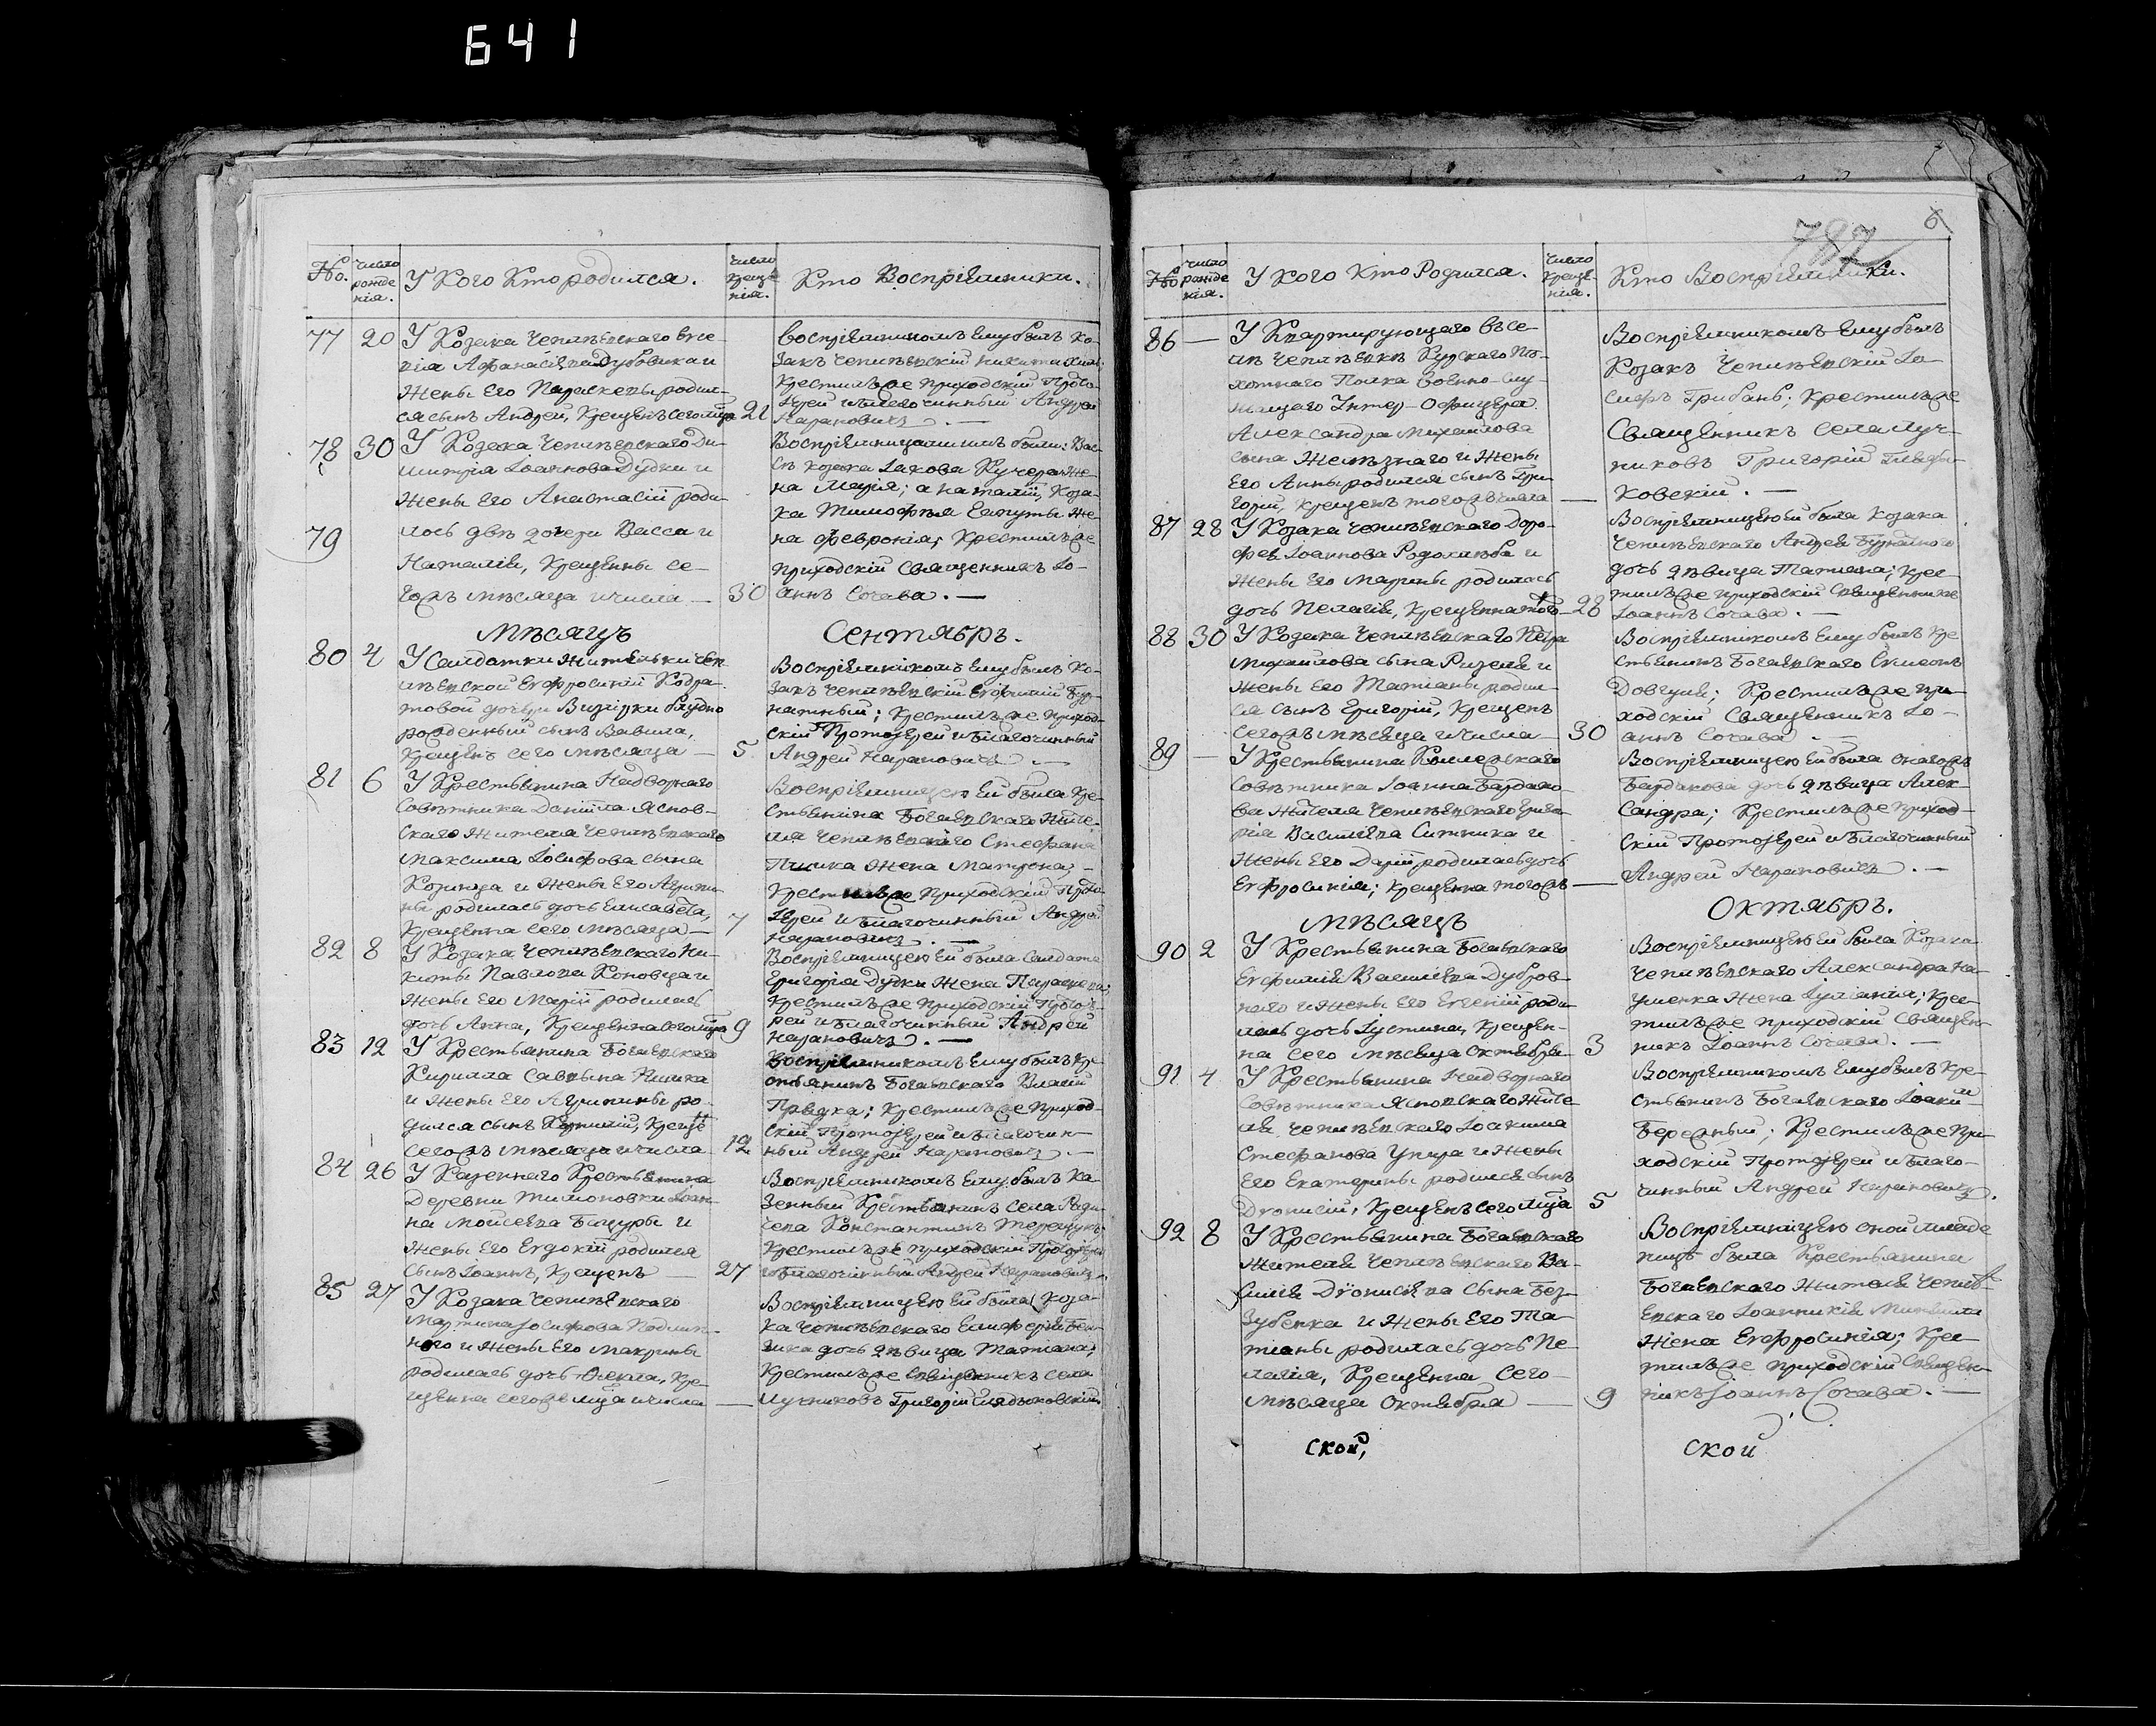 641
No.
число рожде нія.
У Кого Кто родился.
число креще нія.
Кто Воспріемники.
77 20 У Козака Чепилѣвскаго
жены Его Параскевы родил-
ся сынъ Андрей, Крещенъ сего мца 21
воспріемникомъ Ему былъ Ко-
закъ Чепилѣвскій Никита
Крестилъ же приходскій Прото-
Іерей и Благочинный Андрей
Нарановичъ. —
78 30 У Козака Чепилѣвскаго Ди-
митрія Іоаннова Дудки и
жены Его Анастасіи роди-
79 лось двѣ дочери Васса и
Наталія, Крещены се-
гожъ мѣсяца и числа — 30
Воспріемницами имъ были: Вас-
сѣ козака Іакова Кучера же-
на Марія; а Наталіи, Коза-
ка Тимофѣя же-
на Февронія; Крестилъ же
приходскій Священникъ Іо-
аннъ Сочава. —
Мѣсяцъ Сентябрь.
80 4 У Салдатки жительки Чеп-
илѣвской Евфросиніи Кодра-
товой дочери блудно
рожденный сынъ Вавила,
Крещенъ сего мѣсяца — 5
Воспріемникомъ Ему былъ Ко-
закъ Чепилѣвскій Евфимій Бур-
натный; Крестилъ же приход-
скій Протоіерей и Благочинный
Андрей Нарановичъ. —
81 6 У Крестьянина Надворнаго
Совѣтника Даніила Яснов-
скаго жителя Чепилѣвскаго
Максима Іосифова сына
и жены Его Агрипи-
ны родилась дочь Елисавета,
Крещенна сего мѣсяца — 7
Воспріемницею Ей была Кре-
стьянина Богаевскаго жите-
ля Чепилѣвскаго Стефана
жена Матрона; —
Крестилъ же приходскій Прото-
Іерей и Благочинный Андрей
Нарановичъ. —
82 8 У Козака Чепилѣвскаго Ни-
киты Павлова Коновца и
жены Его Маріи родилась
дочь Анна, Крещенна сего мца 9
Воспріемницею Ей была Салдата
Григорія Дудки жена Параскева;
Крестилъ же приходскій Протоіе-
рей и Благочинный Андрей
Нарановичъ. —
83 12 У Крестьянина Богаевскаго
Кирилла Саввина
и жены Его Агрипины ро-
дился сынъ Корнилій, Креще
сегожъ мѣсяца и числа 12
Воспріемникомъ Ему былъ Кре-
стьянинъ Богаевскаго Власій
Прядка; Крестилъ же приход-
скій Протоіерей и Благочин-
ный Андрей Нарановичъ. —
84 26 У Казеннаго Крестьянина
Деревни Тимоновки Іоан-
на Моисеева Бацуры и
жены Его Евдокіи родился
сынъ Іоаннъ, Крещенъ — 27
Воспріемникомъ Ему былъ Ка-
зенный Крестьянинъ Села Ради-
чева Константинъ Терещукъ;
Крестилъ же приходскій Протоіерей
и Благочинный Андрей Нарановичъ
85 27 У Козака Чепилѣвскаго
Мартина Іосифова
и жены Его Макрины
родилась дочь Фекла, Кре-
щенна сегожъ мца и числа —
Воспріемницею Ей была Коза-
ка Чепилѣвскаго
дочь дѣвица Татіана;
Крестилъ же Священникъ села
Лучниковъ Григорій
782
6
No
число рожде нія.
У Кого Кто Родился.
число креще нія.
Кто Воспріемники.
86 — У Квартирующаго въ се-
лѣ Чепилѣвкѣ Курскаго Пѣ-
хотнаго Полка военно-слу-
жащаго Унтер-Офицера
Александра Михаилова
сына Желѣзнаго и жены
Его Анны родился сынъ Гри-
горій, крещенъ тогожъ числа —
Воспріемникомъ Ему былъ
Козакъ Чепилѣвскій Іо-
сифъ Грибань; Крестилъ же
Священникъ села Луч-
никовъ Григорій
ковскій. —
87 28 У Козака Чепилѣвскаго Доро-
фея Іоаннова и
жены Его Марины родилась
дочь Пелагія, Крещенна 28
Воспріемницею Ей была Козака
Чепилѣвскаго Андрея Бурнатного
дочь дѣвица Татіана; Крес-
тилъ же приходскій Священникъ
Іоаннъ Сочава. —
88 30 У Козака Чепилѣвскаго Петра
Михаилова сына и
жены Его Татіаны родил-
ся сынъ Григорій, Крещенъ
сегожъ мѣсяца и числа — 30
Воспріемникомъ Ему былъ Кре-
стьянинъ Богаевскаго Симеонъ
Довгуля; Крестилъ же при-
ходскій Священникъ Іо-
аннъ Сочава. —
89 — У Крестьянина Коллежскаго
Совѣтника Іоанна Бардако-
ва жителя Чепилѣвскаго Григо-
рія Василіева Ситника и
жены Его Даріи родилась дочь
Евфросинія; крещенна тогожъ —
Воспріемницею Ей была онагожъ
Бардакова дочь дѣвица Алек-
сандра; Крестилъ же приход-
скій Протоіерей и Благочинный
Андрей Нарановичъ. —
Мѣсяцъ Октябрь.
90 2 У Крестьянина Богаевскаго
Евфимія Василіева Дубров-
наго и жены Его Евгеніи роди-
лась дочь Іустина, Крещен-
на сего мѣсяца Октября — 3
Воспріемницею Ей была Козака
Чепилѣвскаго Александра На-
уменка жена Іуліанія; Крес-
тилъ же приходскій Священ-
никъ Іоаннъ Сочава. —
91 4 У Крестьянина Надворнаго
Совѣтника Ясновскаго жите-
ля Чепилѣвскаго Іоакима
Стефанова Упира и жены
Его Екатерины родился сынъ
Діонисій, Крещенъ сего мца 5
Воспріемникомъ Ему былъ Кре-
стьянинъ Богаевскаго Іоаким
Бережный; Крестилъ же при-
ходскій Протоіерей и Благо-
чинный Андрей Нарановичъ.
92 8 У Крестьянина Богаевскаго
жителя Чепилѣвскаго Ва-
силія Діонисіева сына Без-
зубенка и жены Его Та-
тіаны родилась дочь Пе-
лагія, Крещенна Сего
мѣсяца Октября — 9
Воспріемницею оной младе
ницѣ была Крестьянина
Богаевскаго жителя Чепилѣ
вскаго Іоанникія
жена Евфросинія; Крес-
тилъ же приходскій Священ-
никъ Іоаннъ Сочава. —
ской,
ской